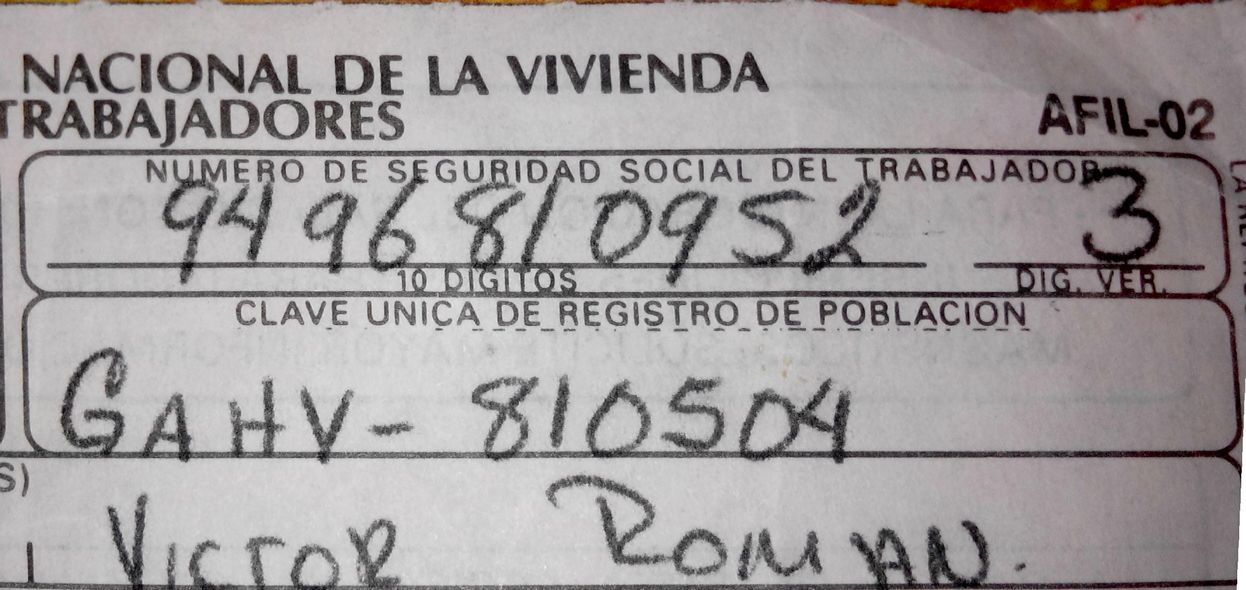 NACIONAL DE LA VIVIENDA
TRABAJADORES
AFIL-02
NUMERO DE SEGURIDAD SOCIAL DEL TRABAJADOR
9496810952 3
10 DIGITOS DIG. VER.
CLAVE UNICA DE REGISTRO DE POBLACION
GAHV-810504
S)
VICTOR ROMAN.